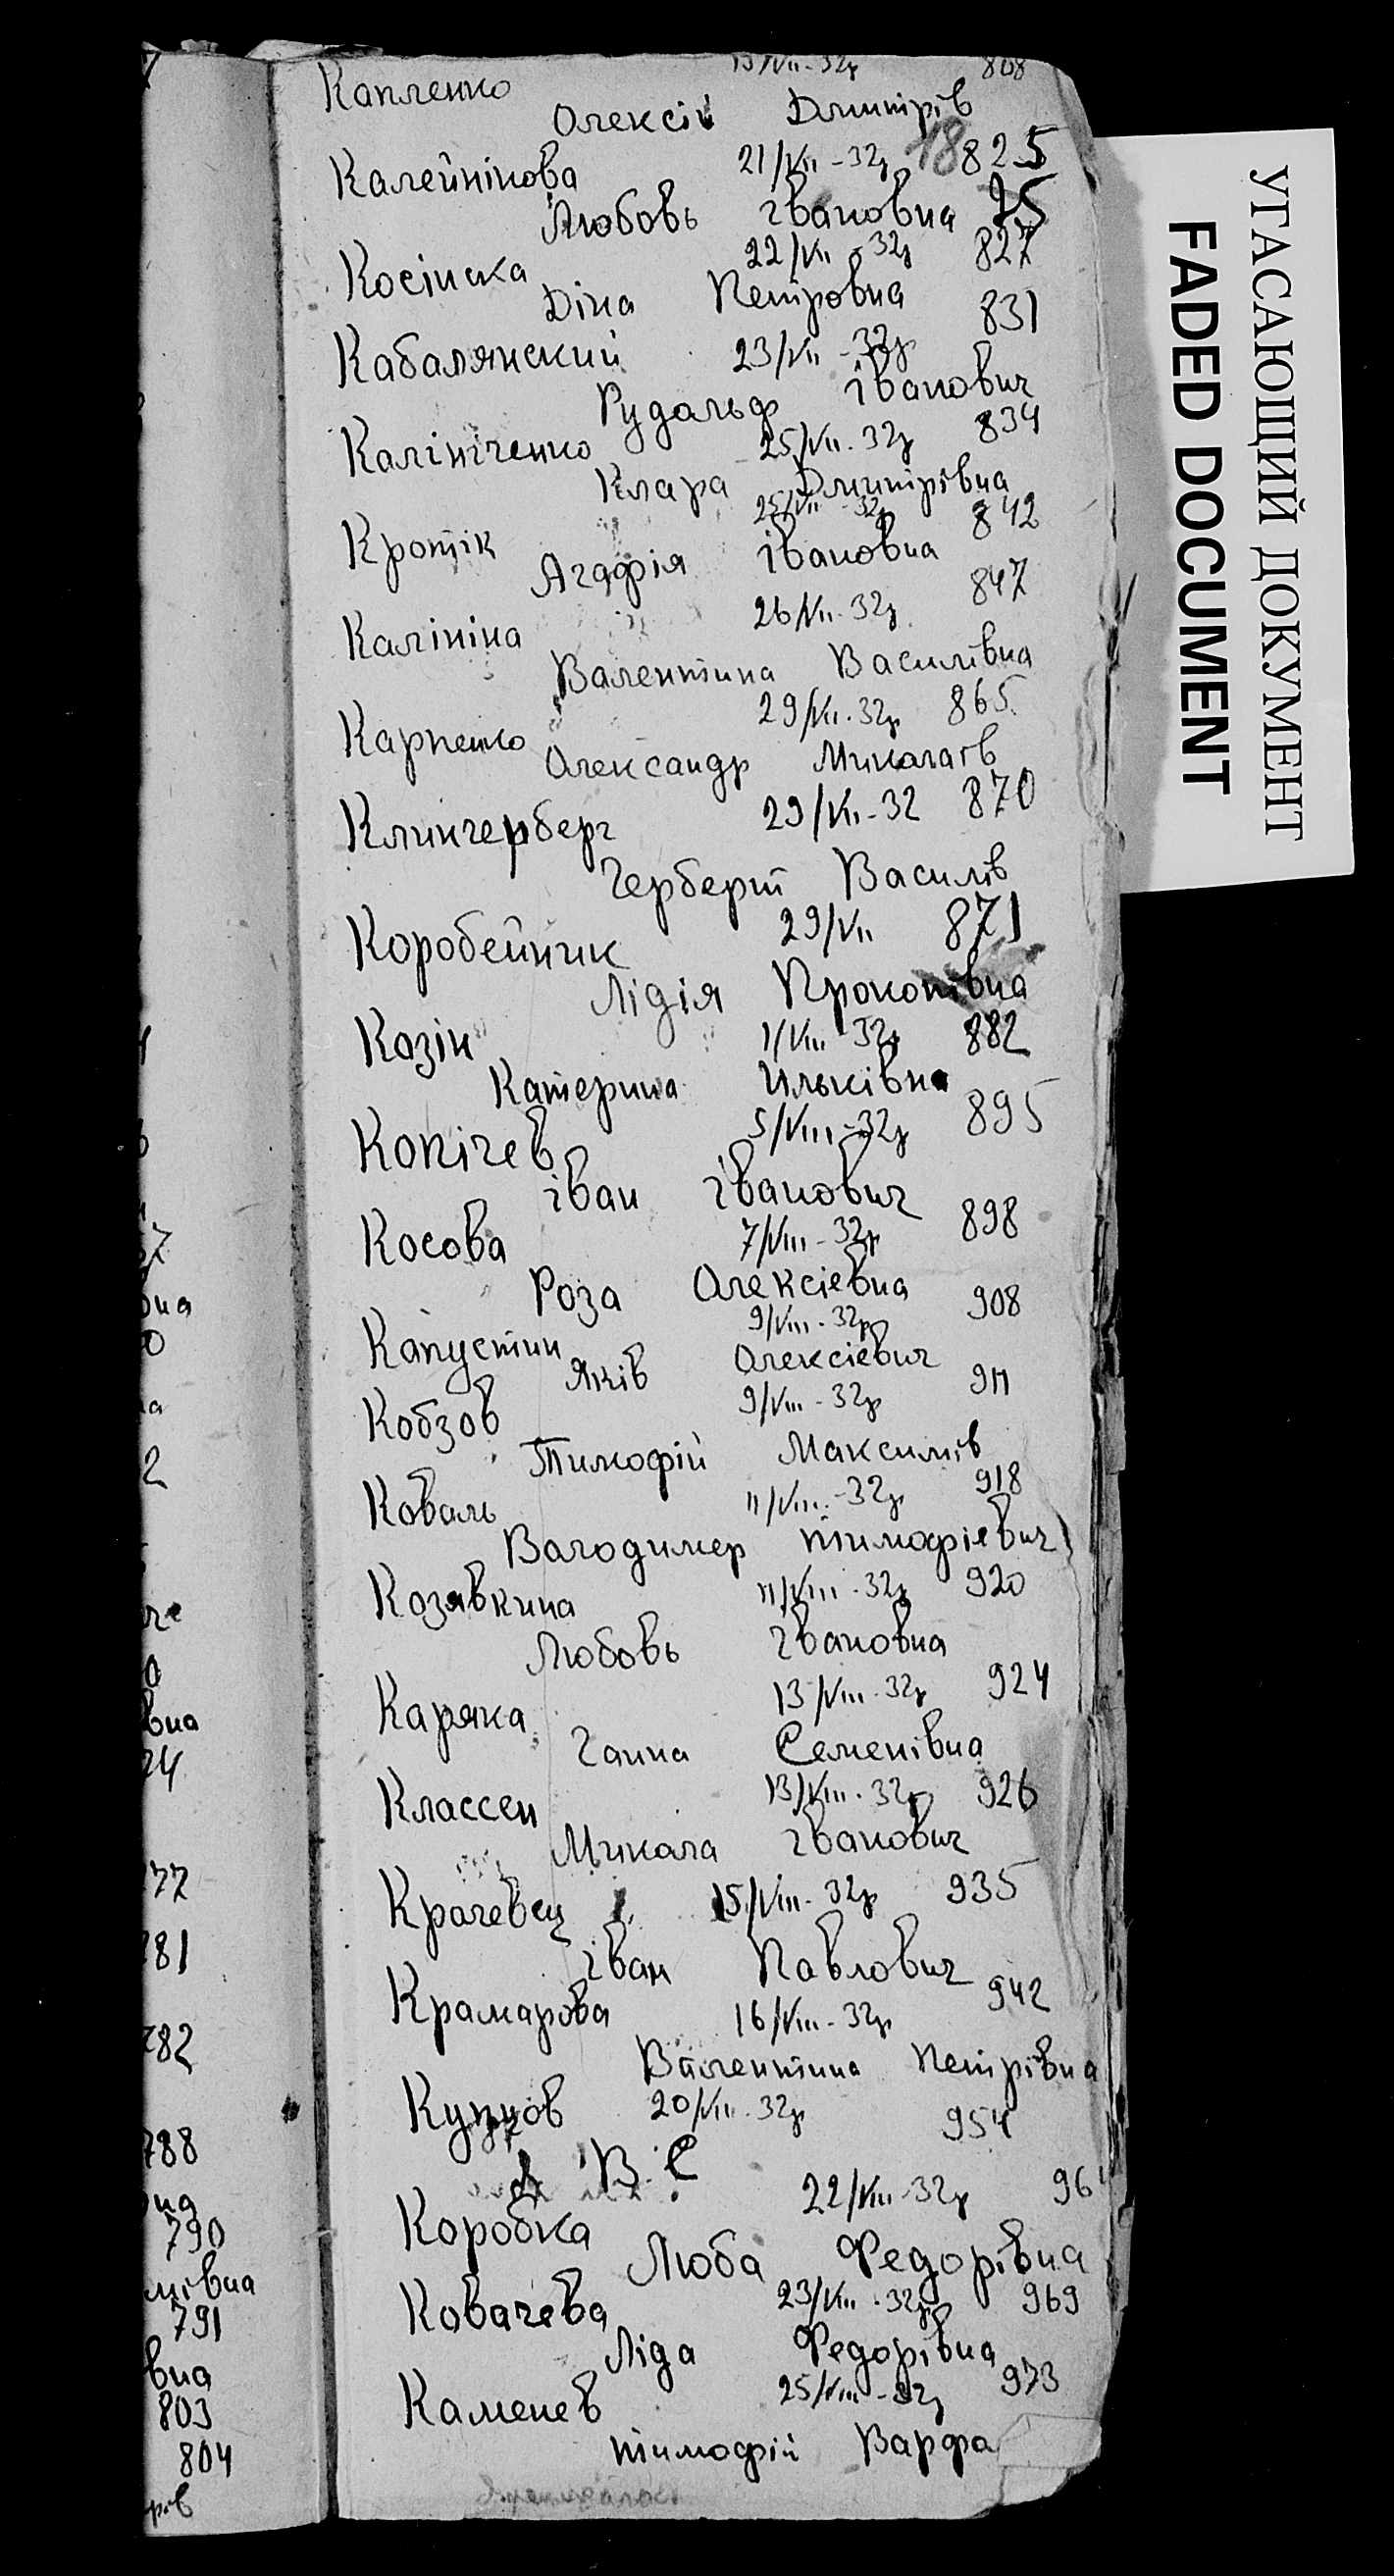 13/VII-32р 808
Капленко
Олексій Дмитрів
18
Калейнікова 21/VII-32р 825
Любовь івановна 25
Косінска 22/VII-32р 827
Діна Петровна
Кабалянский 23/VII-32р 831
Рудольф іванович
Калініченко 25/VII-32р 834
Клара Дмитрівна
Кротік 25/VII-32р 842
Агафія івановна
Калініна 26/VII-32р 847
Валентина Василівна
Карпенко 29/VII-32р 865
Олександр Миколаєв
Клингерберг 29/VII-32 870
Герберт Василів
Коробейник 29/VII 871
Лідія Прокопівна
Козін 1/VIII-32р 882
Катерина Ильківна
Копічев 5/VIII-32р 895
іван іванович
Косова 7/VIII-32р 898
Роза Олексієвна
Капустин 9/VIII-32р 908
Яків Олексієвич
Кобзов 9/VIII-32р 911
Тимофій Максимів
Коваль 11/VIII-32р 918
Володимер тимофієвич
Козявкина 11/VIII-32р 920
Любовь івановна
Каряка 13/VIII-32р 924
Ганна Семенівна
Классен 13/VIII-32р 926
Микола іванович
Крачевец 15/VIII-32р 935
іван Павлович
Крамарова 16/VIII-32р 942
Валентина Петрівна
Купцов 20/VIII-32р 954
В. С
Коробка 22/VIII-32р 96
Люба Федорівна
Ковачева 23/VIII-32р 969
Ліда Федорівна
Каменев 25/VIII-32р 973
тимофій Варфа
УГАСАЮЩИЙ ДОКУМЕНТ
FADED DOCUMENT
77
781
782
788
790
791
803
804